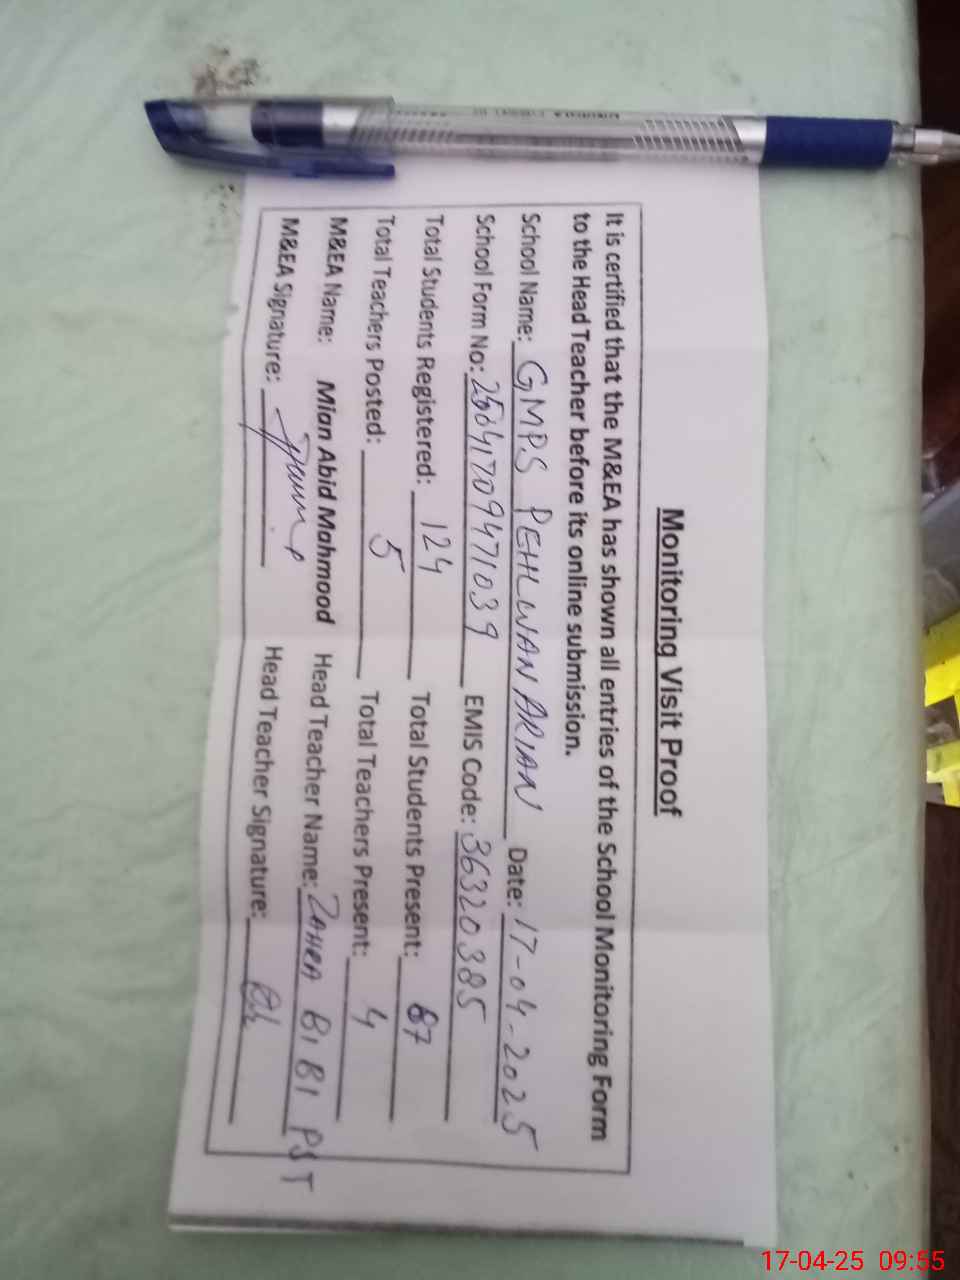 Monitoring Visit Proof
It is certified that the M&EA has shown all entries of the School Monitoring Form
to the Head Teacher before its online submission.
School Name: GMPS PEHLWAN ARIAN Date: 17-04-2025
School Form No: 25041709471039 EMIS Code: 36320385
Total Students Registered: 124 Total Students Present: 87
Total Teachers Posted: 5 Total Teachers Present: 4
M&EA Name: Mian Abid Mahmood Head Teacher Name: ZAHRA BIBI PST
M&EA Signature: Head Teacher Signature:
17-04-25 09:55